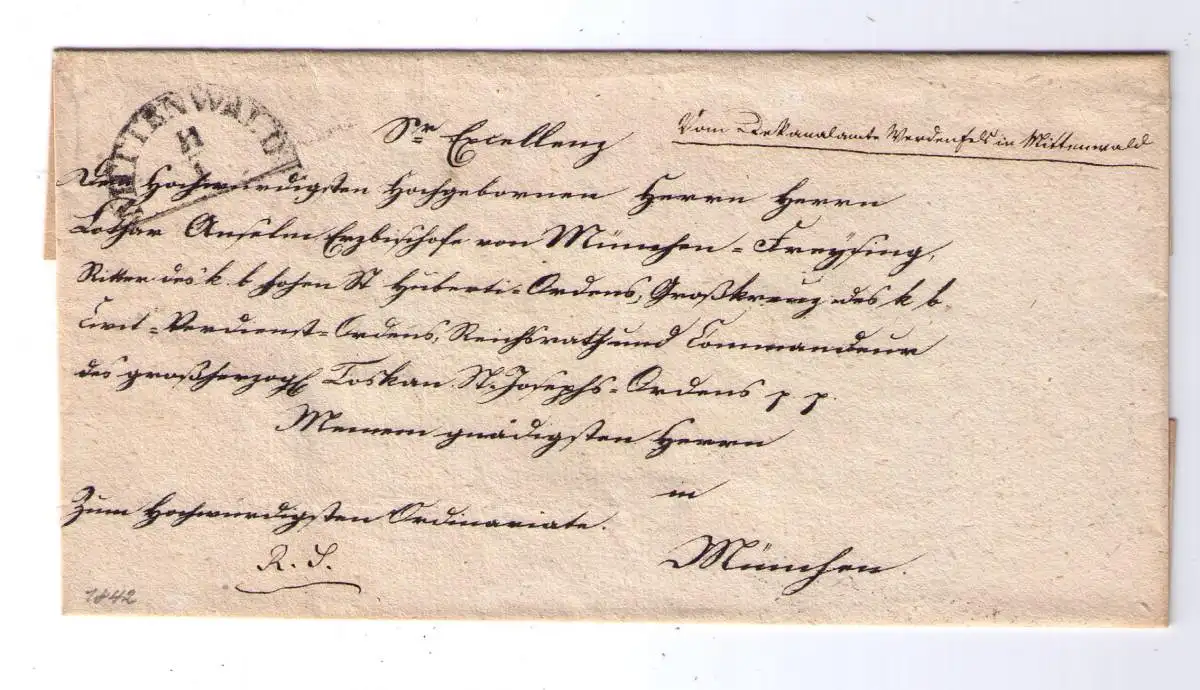 MITTENWALD
Sr. Excellenz
Vom Dekanalamte Werdenfels in Mittenwald
Dem Hochwürdigsten Hochgebornen Herrn Herrn
Lothar Anselm Erzbischofe von München=Freysing,
Ritter des k. b. hohen St Huberti=Ordens, Großkreuz des k b.
Civil=Verdienst=Ordens, Reichsrath und Commandeur
des großherzogl Toskan St. Josephs=Ordens p p.
Meinem gnädigsten Herrn
in
Zum Hochwürdigsten Ordinariate.
München.
R. S.
1842